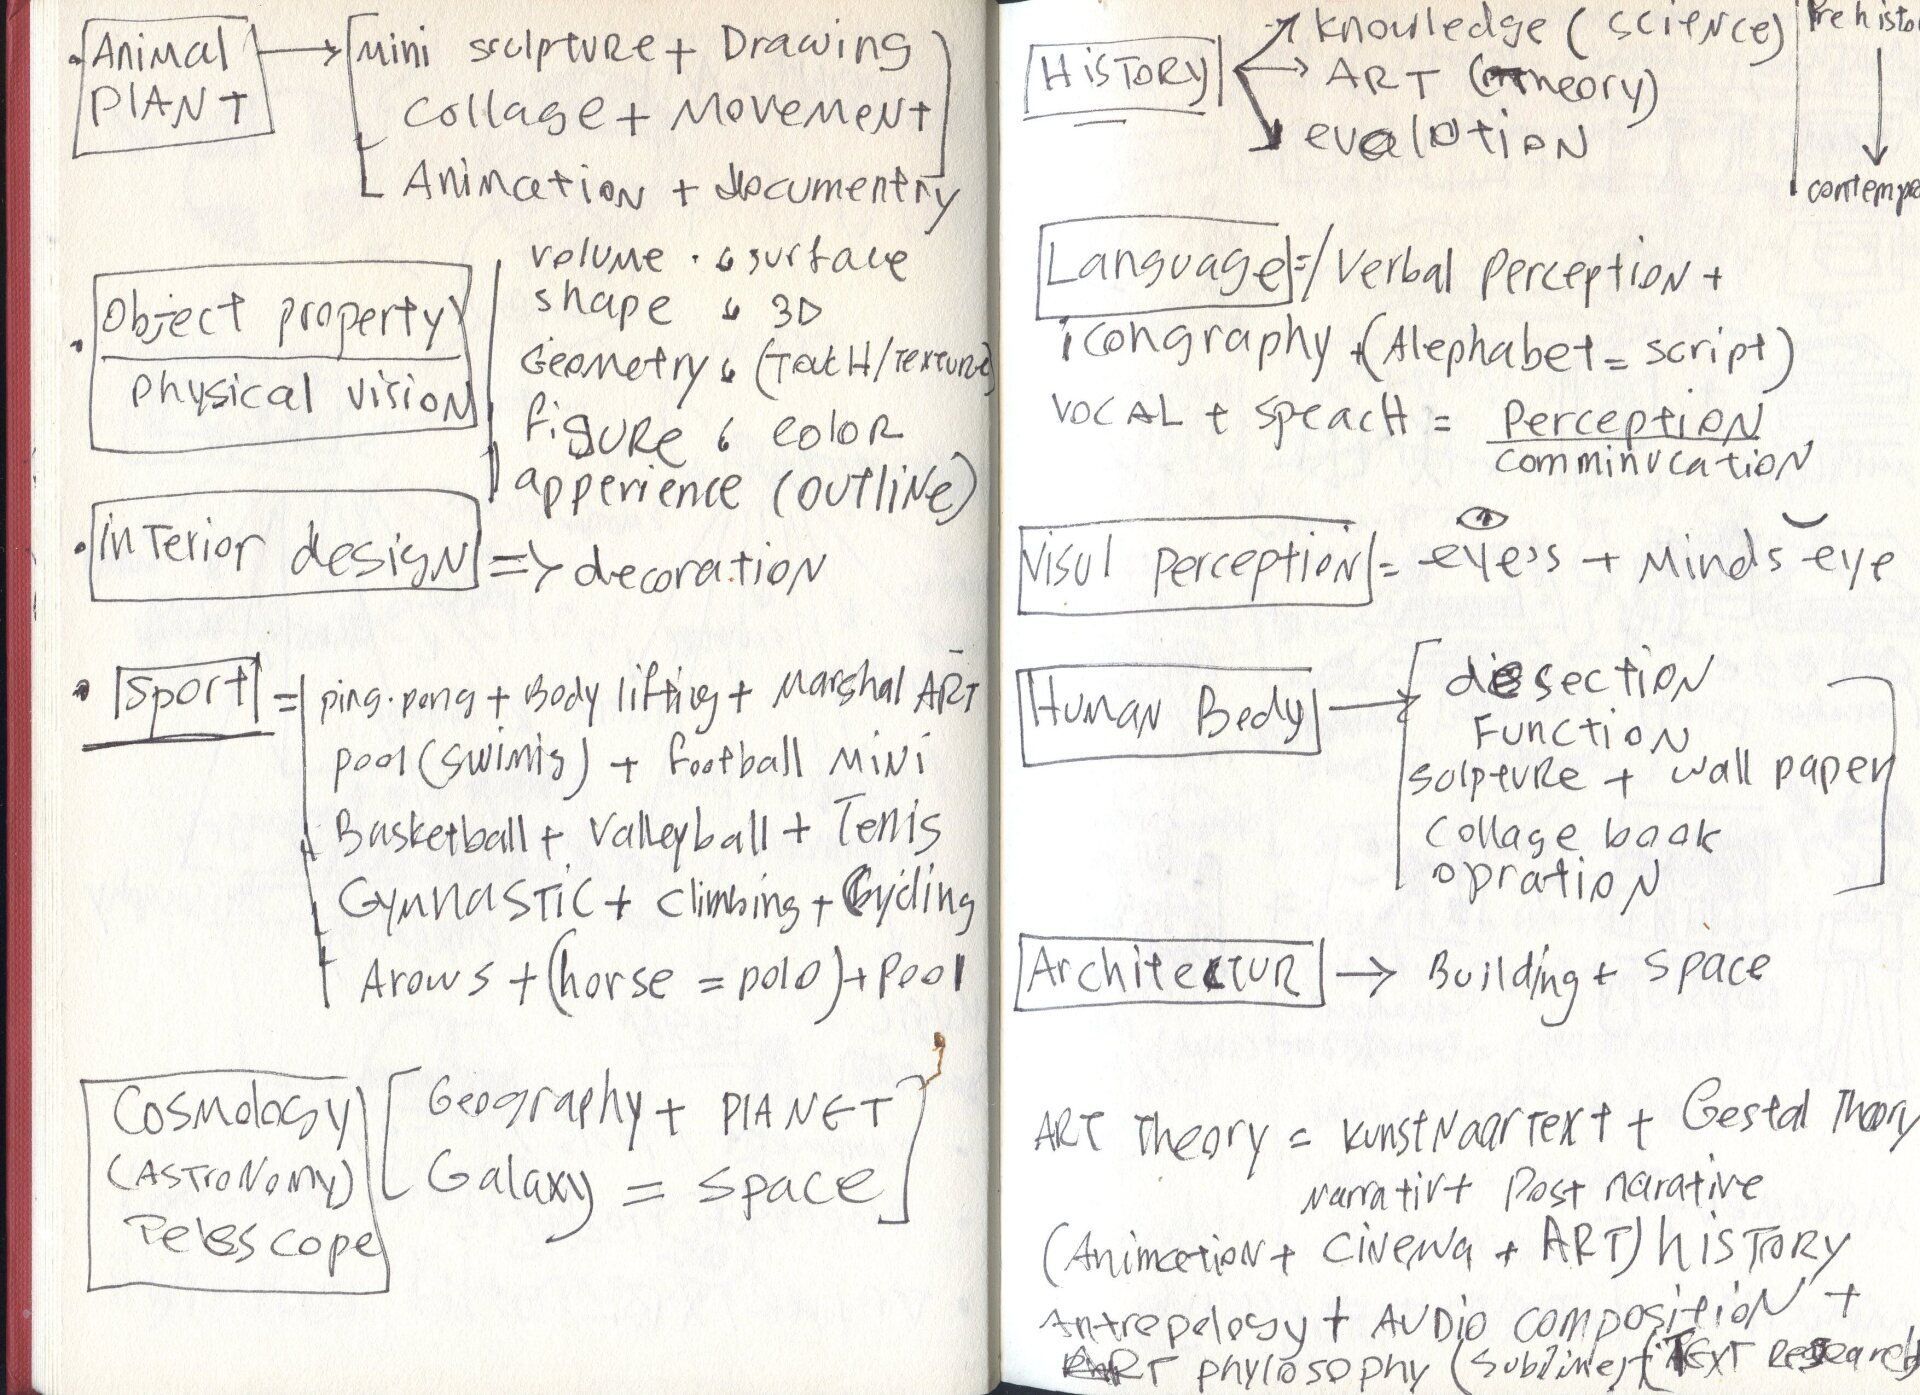 Animal
PlANT
mini sculpture + Drawing
collage + MOVEMENT
Animation + documentry
Object property
physical vision
volume . & surface
shape & 3D
Geometry & (TOUCH/TEXTURE)
figure & color
apperience (OUTLINE)
inTerior design => decoration
Sport = ping.pong + Body lifting + Marshal ART
pool (swimis) + football mini
Basketball + Valleyball + Tenis
GYMNASTIC + climbing + Cycling
Arows + (horse = polo) + pool
Cosmology
(ASTRONOMY)
Telescope
Geography + PlANET
Galaxy = space
HiSTORY
knowledge (science)
ART (Theory)
evalution
Prehisto
contempo
Language =/ Verbal perception +
icongraphy + (Alephabet = script)
VOCAL + SpeacH = Perception
comminucation
Visul perception = eye's + Minds eye
Human Body
dissection
Function
sulpture + wall paper
collage book
opration
ArchitecTUR → Building + space
ART Theory = kunstNaarText + Gestal Theory
narrativ + Post narative
(Animation + cinema + ART) hiSTORY
Antrepology + AUDiO composition +
ART phylosophy (sublime) + (TEXT Research